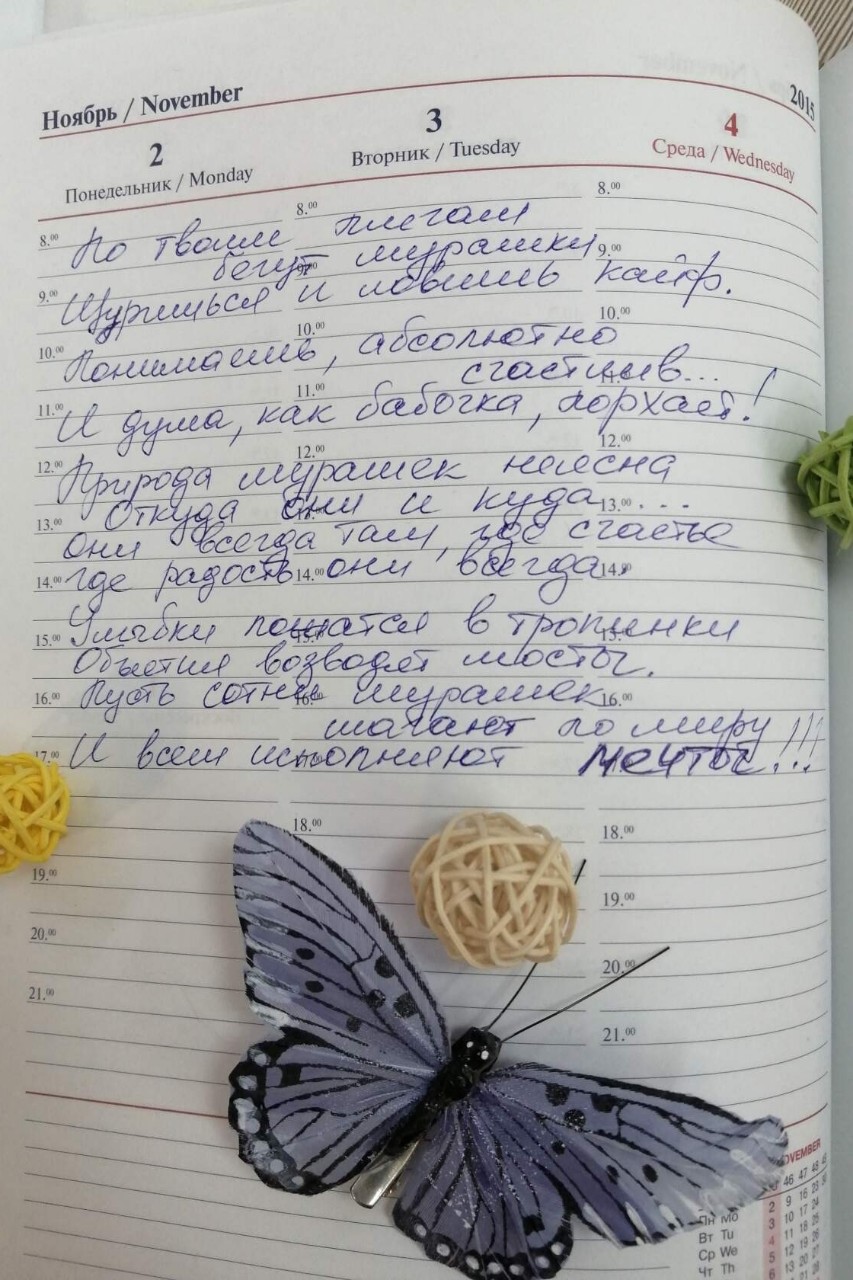 Ноябрь / November
2015
2
Понедельник / Monday
3
Вторник / Tuesday
4
Среда / Wednesday
По твоим плечам
бегут мурашки
Щуришься и ловишь кайф.
Понимаешь, абсолютно
счастлив...
И душа, как бабочка, порхает!
Природа мурашек неясна
Откуда они и куда...
Они всегда там, где счастье
где радость они всегда.
Улыбки ложатся в тропинки
Объятия возводят мосты.
Пусть сотни мурашек
шагают по миру
И всем исполняют мечты!!!
8.00
9.00
10.00
11.00
12.00
13.00
14.00
15.00
16.00
17.00
19.00
20.00
21.00
8.00
10.00
11.00
12.00
14.00
18.00
8.00
9.00
10.00
12.00
13.00
14.00
15.00
16.00
18.00
19.00
20.00
21.00
46 47 48
Пн Mo 2 9 16 23
Вт Tu 3 10 17 24
Ср We 4 11 18 25
Чт Th 5 12 19 26